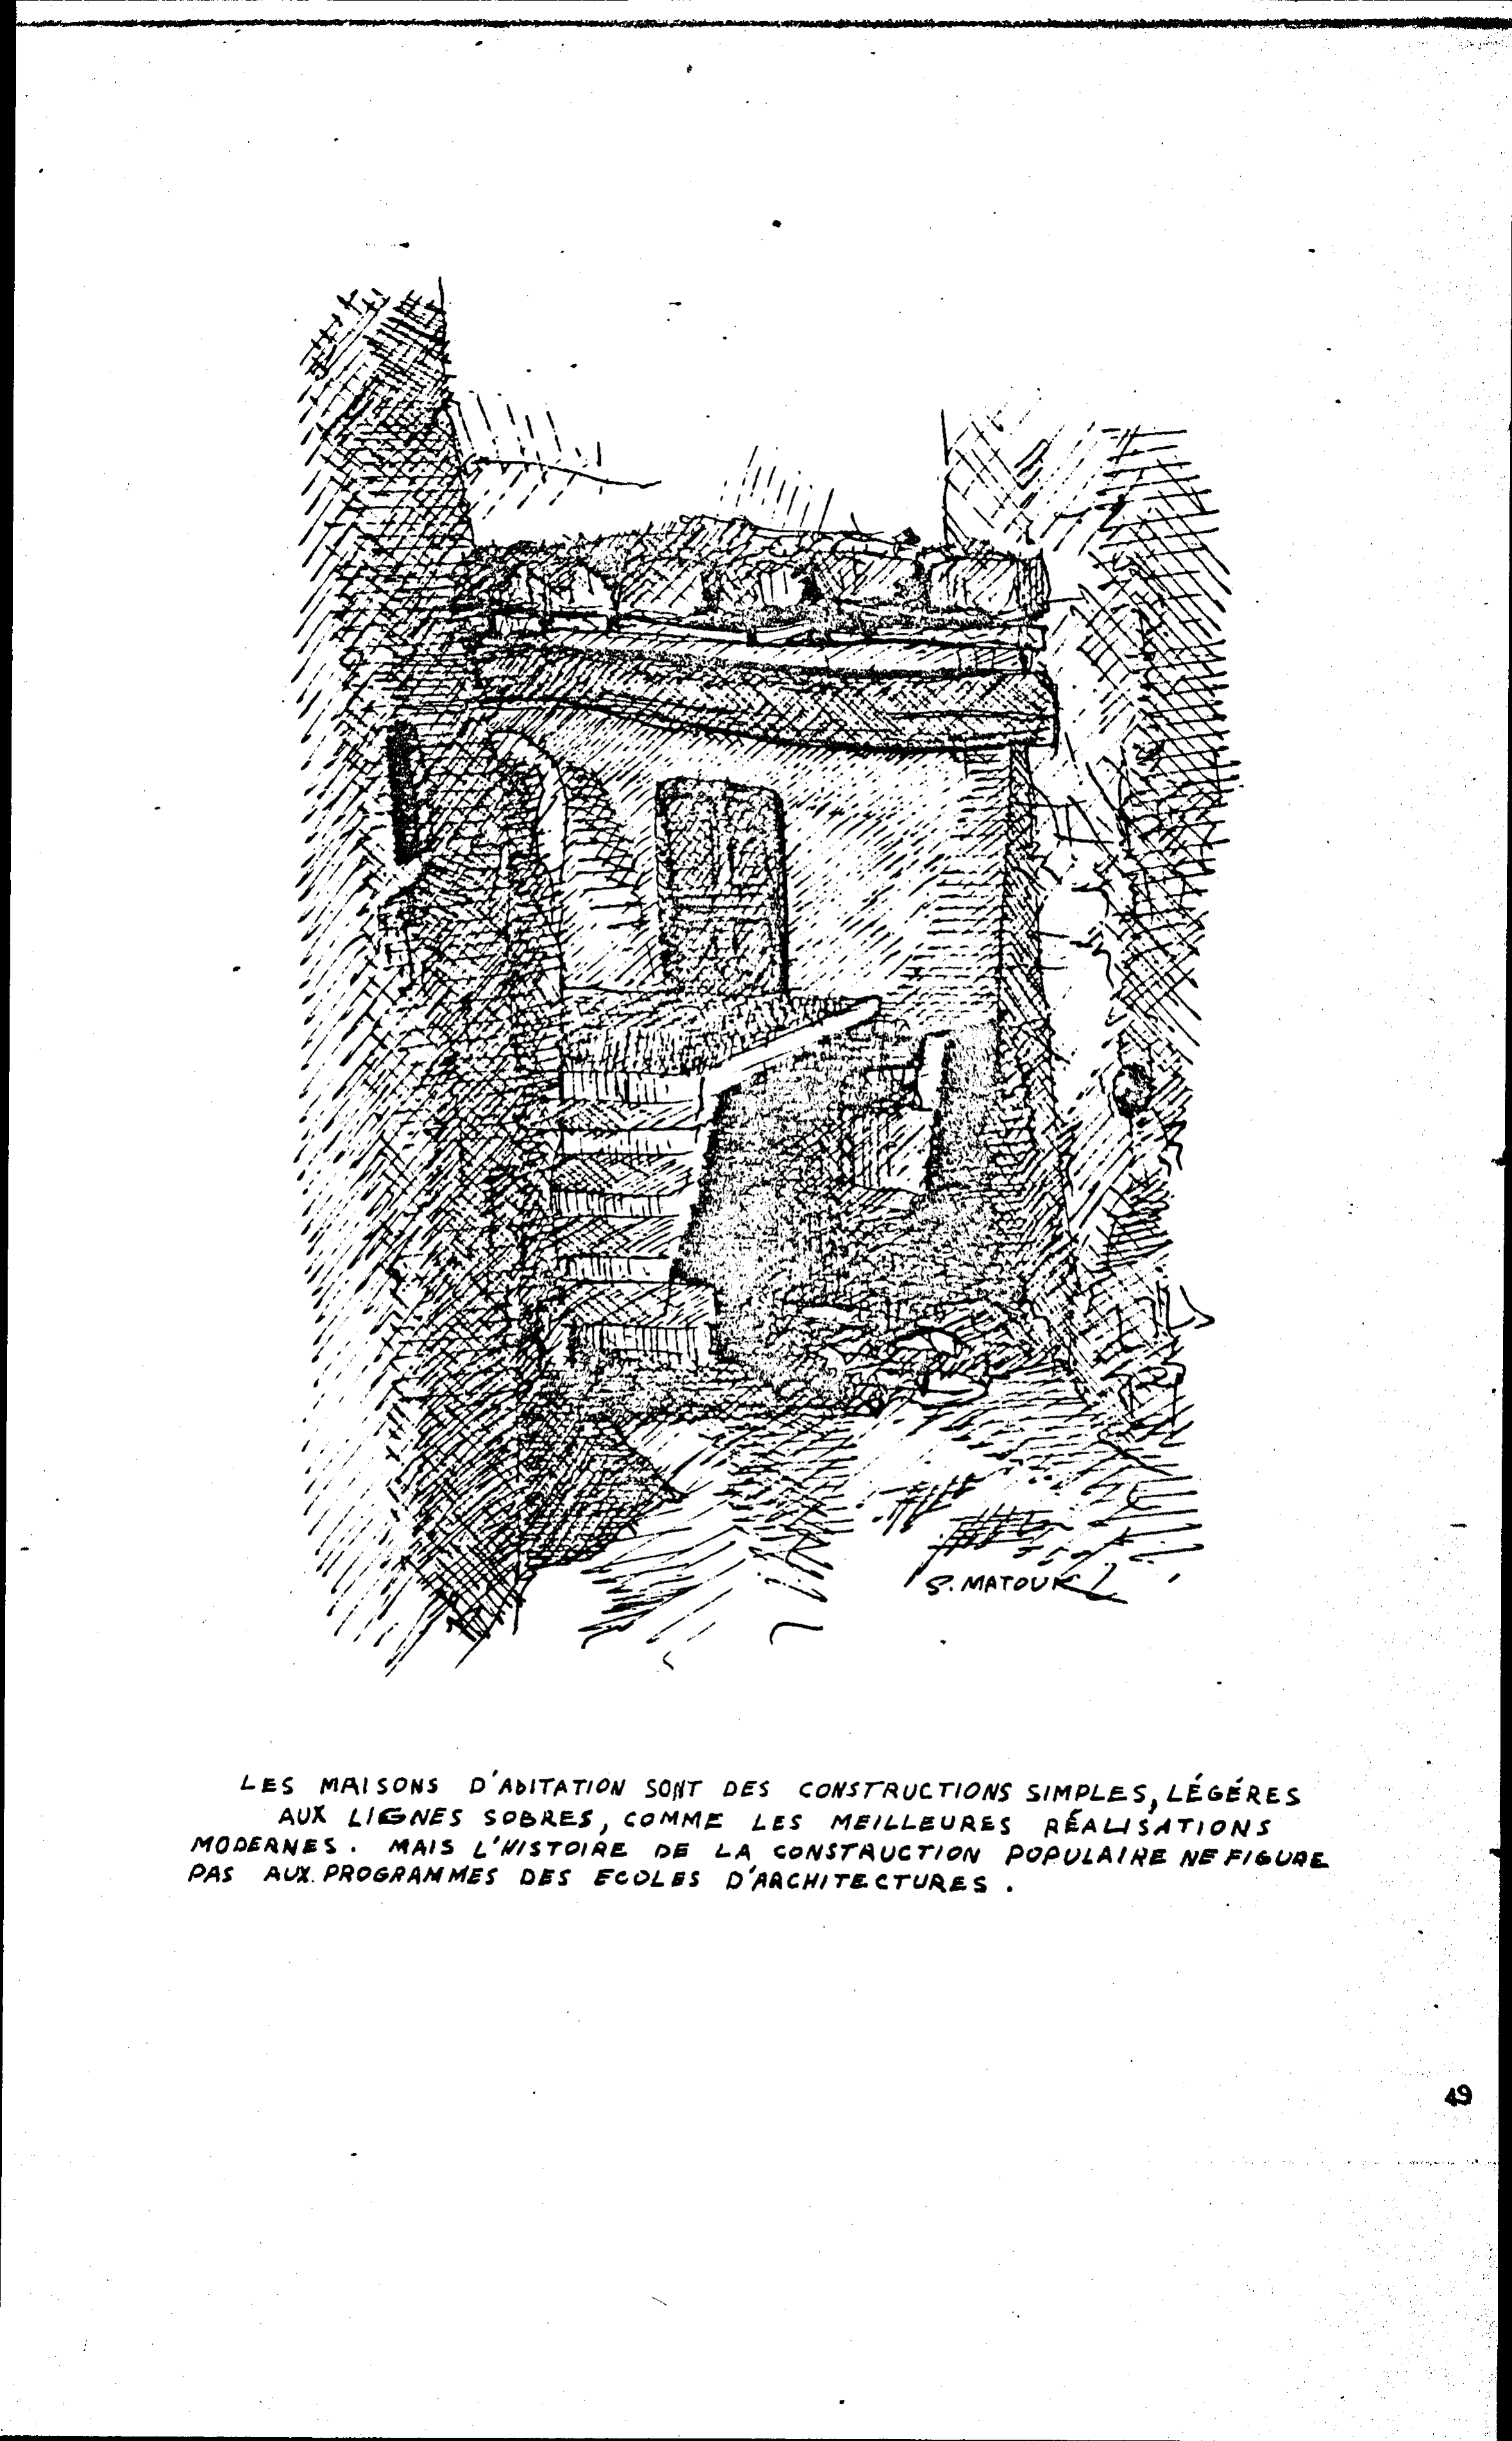 S. MATOUK
LES MAISONS D'ABITATION SONT DES CONSTRUCTIONS SIMPLES, LÉGÉRES
AUX LIGNES SOBRES, COMME LES MEILLEURES RÉALISATIONS
MODERNES. MAIS L'HISTOIRE DE LA CONSTRUCTION POPULAIRE NE FIGURE
PAS AUX PROGRAMMES DES ECOLES D'ARCHITECTURES.
49